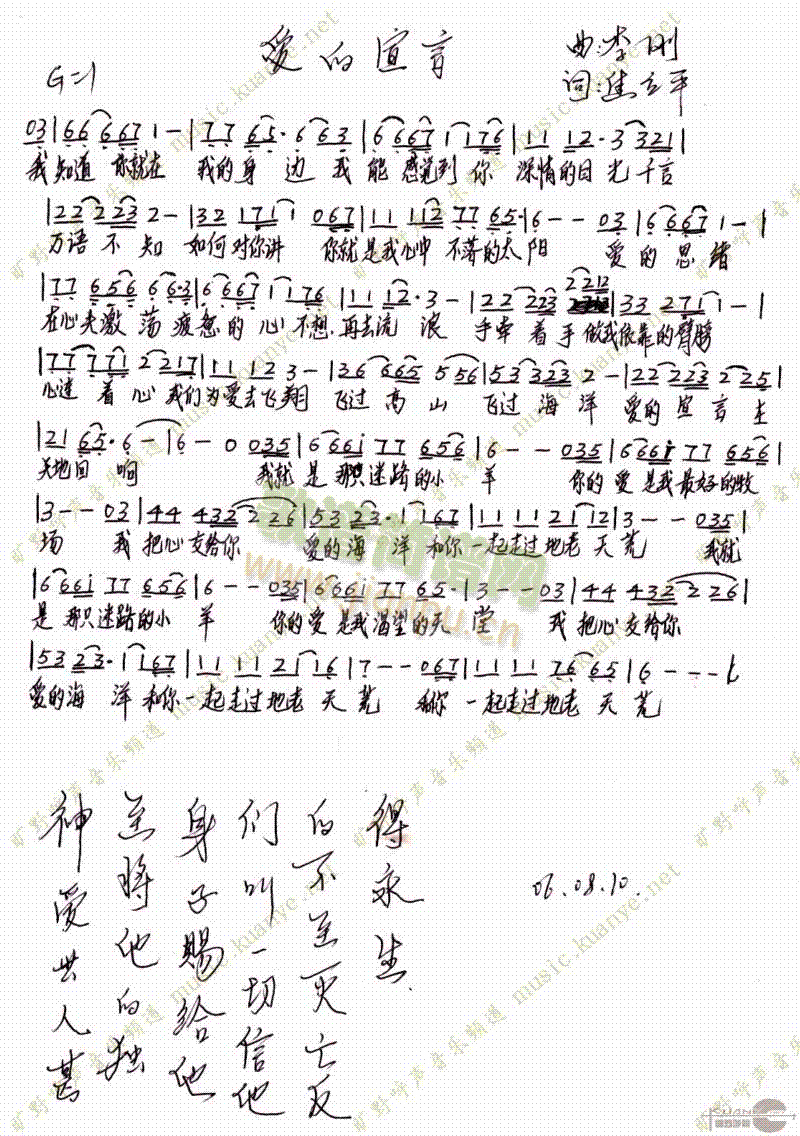 爱的宣言
曲:李刚
G=1
词:焦立平
03|66 6667 1-|77 65·6 663|6667 1176|11 12·3 3321|
我知道 你就在 我的身 边 我 能 感觉到 你 深情的目 光 千言
|22 2223 2-|32 1711 067|11 112 77 65·|6-- 03|66667 1-|
万语 不 知 如何对你讲 你就是我心中 不落的太阳 爱 的 思 绪
|77 656 66·3|6667 1176|11 12·3-|22 2223 2212|33 2711-|
在心头激 荡 疲惫的 心 不想 再去流 浪 手牵 着手 做我依靠的臂膀
|77 771 2217|11 12 3-|36 6665 556|53 3323 2-|22 2223 225|
心连 着心 我们为爱去飞翔 飞过 高 山 飞过 海 洋 爱的 宣言 在
|21 65·6-|6-0 035|6661 77 656|6-- 035|6661 77 656|
天地回 响 我就 是 那只迷路的小 羊 你的 爱 是我最好的牧
|3-- 03|44 4322 226|53 23·1167|11 11 2112|3-- 035|
场 我 把心交给你 爱的海 洋 和你一起走过地老 天荒 我就
|6661 77 656|6-- 035|6661 77 65·|3-- 03|44 432 226|
是 那只迷路的小 羊 你的爱 是我渴望的天 堂 我 把心 交给你
|53 23·1167|11 11 2116|7-- 067|11 11 76 65|6---|
爱的海 洋 和你一起走过 地老 天荒 和你 一起走过地老 天荒
神爱世人甚
至将他的独
身子赐给他
们叫一切信他
的不至灭亡反
得永生.
06.08.10.
歌谱简谱网
www.jianpu.cn
旷野呼声音乐频道 music.kuanye.net
KUANYE